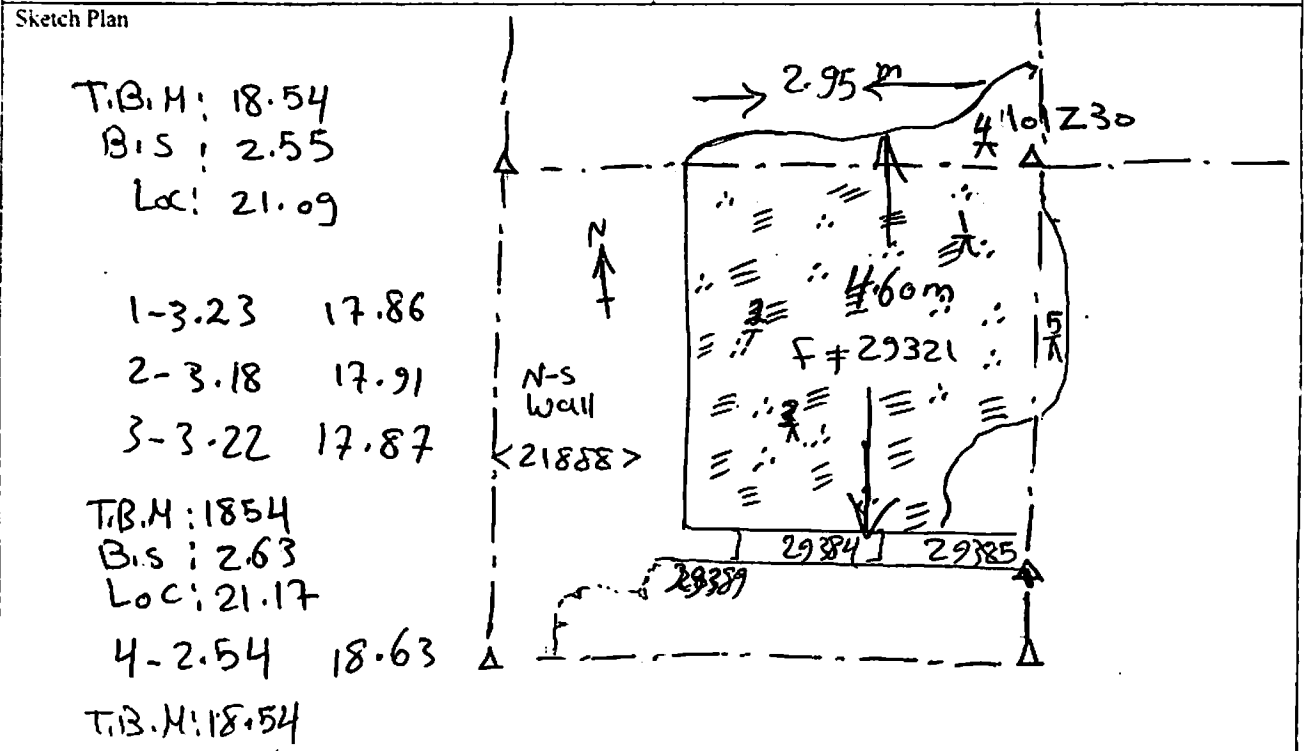 Sketch Plan
T.B.M: 18.54
B.S: 2.55
Loc: 21.09
1-3.23 17.86
2-3.18 17.91
3-3.22 17.87
T.B.M: 1854
B.S: 2.63
Loc: 21.17
4-2.54 18.63
T.B.M: 18.54
2.95 m
4
101Z30
N
1
4.60m
5
F ≠ 29321
N-S
Wall
<21888>
29384
29385
29389